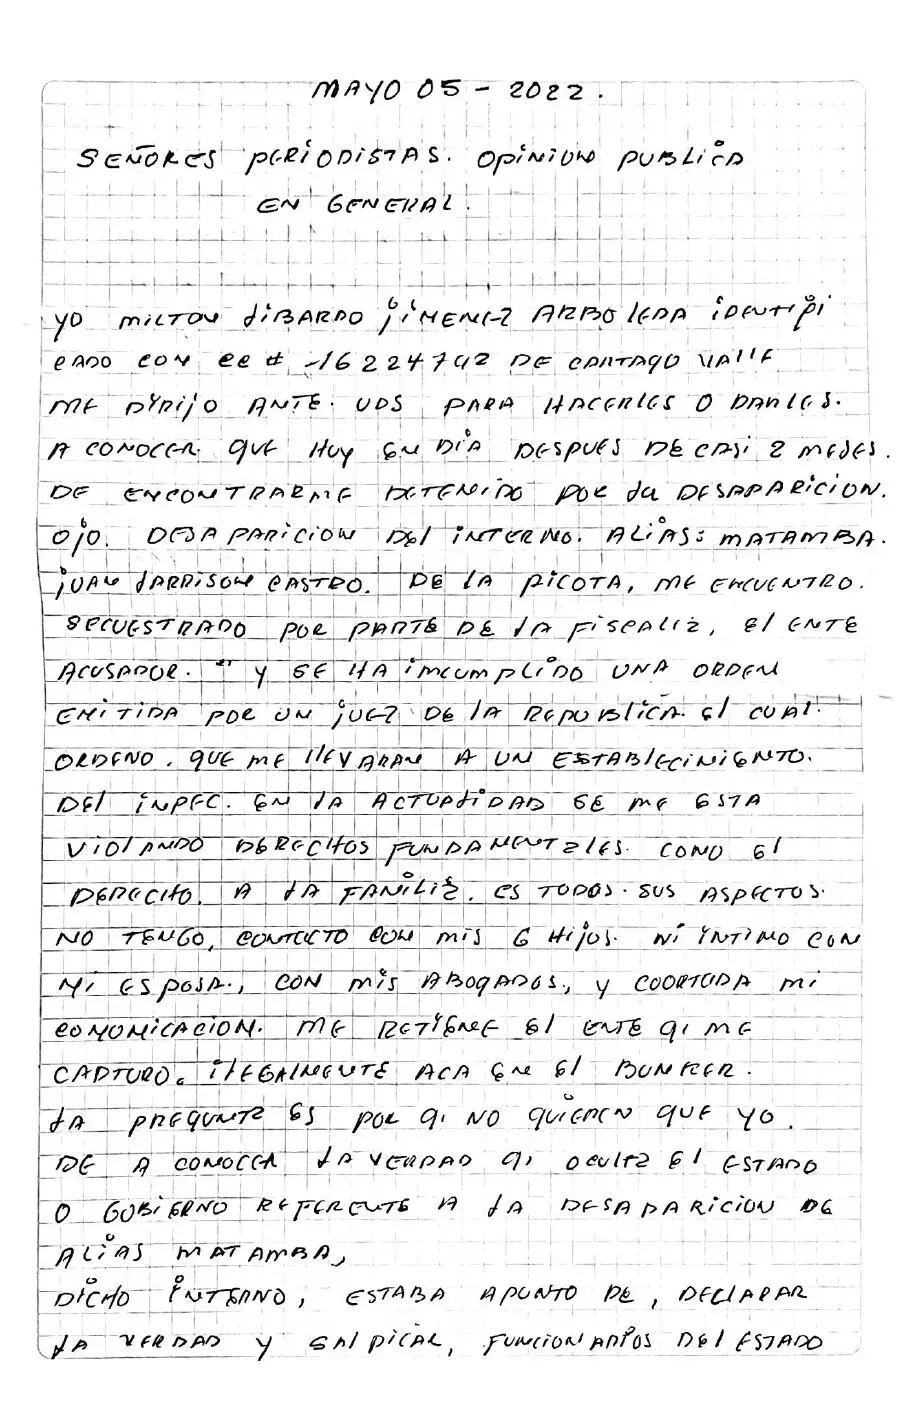 MAYO 05 - 2022.
SEÑORES PERIODISTAS. OPINION PUBLICA
EN GENERAL.
YO MILTON LIBARDO JIMENEZ ARBOLEDA IDENTIFI
CADO CON CC # -16224742 DE CARTAGO VALLE
ME DYRIJO ANTE. UDS PARA HACERLES O DARLES.
A CONOCER. QUE HUY EN DIA DESPUES DE CASI 2 MESES.
DE ENCONTRARME DETENIDO POR LA DESAPARICION.
OJO. DESAPARICION DEL INTERNO. ALIAS: MATAMBA.
JUAN LARRISON CASTRO. DE LA PICOTA, ME ENCUENTRO.
SECUESTRADO POR PARTE DE LA FISCALIA, El ENTE
ACUSADOR. "" Y SE HA IMCUMPLIDO UNA ORDEN
EMITIDA POR UN JUEZ DE LA REPUBLICA. El CUAL.
ORDENO. QUE ME LLEVARAN A UN ESTABLECIMIENTO.
DEL INPEC. EN LA ACTUALIDAD SE ME ESTA
VIOLANDO DERECHOS FUNDAMENTALES. COMO El
DERECHO. A LA FAMILIA. ES TODOS. SUS ASPECTOS.
NO TENGO, CONTACTO CON MIS 6 HIJOS. NI INTIMO CON
MI ESPOSA., CON MIS ABOGADOS., Y COORTADA MI
COMONICACION. ME RETIENE El ENTE Q. ME
CAPTURO. ILEGALMENTE ACA EN El BUNKER.
LA PREGUNTA ES POR Q. NO QUIEREN QUE YO.
DE A CONOCER LA VERDAD Q. OCULTA El ESTADO
O GOBIERNO REFERENTE A LA DESAPARICION DE
ALIAS MATAMBA,
DICHO INTERNO, ESTABA APUNTO DE, DECLARAR
LA VERDAD Y SALPICAR, FUNCIONARIOS DEL ESTADO